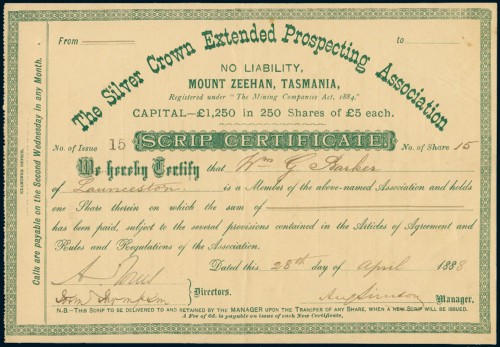 From to
The Silver Crown Extended Prospecting Association
NO LIABILITY,
MOUNT ZEEHAN, TASMANIA,
Registered under "The Mining Companies Act, 1884."
CAPITAL—£1,250 in 250 Shares of £5 each.
No. of Issue 15 SCRIP CERTIFICATE No. of Share 15
We hereby Certify that Wm G Barker
of Launceston is a Member of the above-named Association and holds
one Share therein on which the sum of
has been paid, subject to the several provisions contained in the Articles of Agreement and
Rules and Regulations of the Association.
Dated this 28th day of April 1888
Directors.
Manager.
N.B.—THIS SCRIP TO BE DELIVERED TO AND RETAINED BY THE MANAGER UPON THE TRANSFER OF ANY SHARE, WHEN A NEW SCRIP WILL BE ISSUED.
A Fee of 6d. is payable on issue of each New Certificate.
Calls are payable on the Second Wednesday in any Month.
EXAMINER OFFICE.